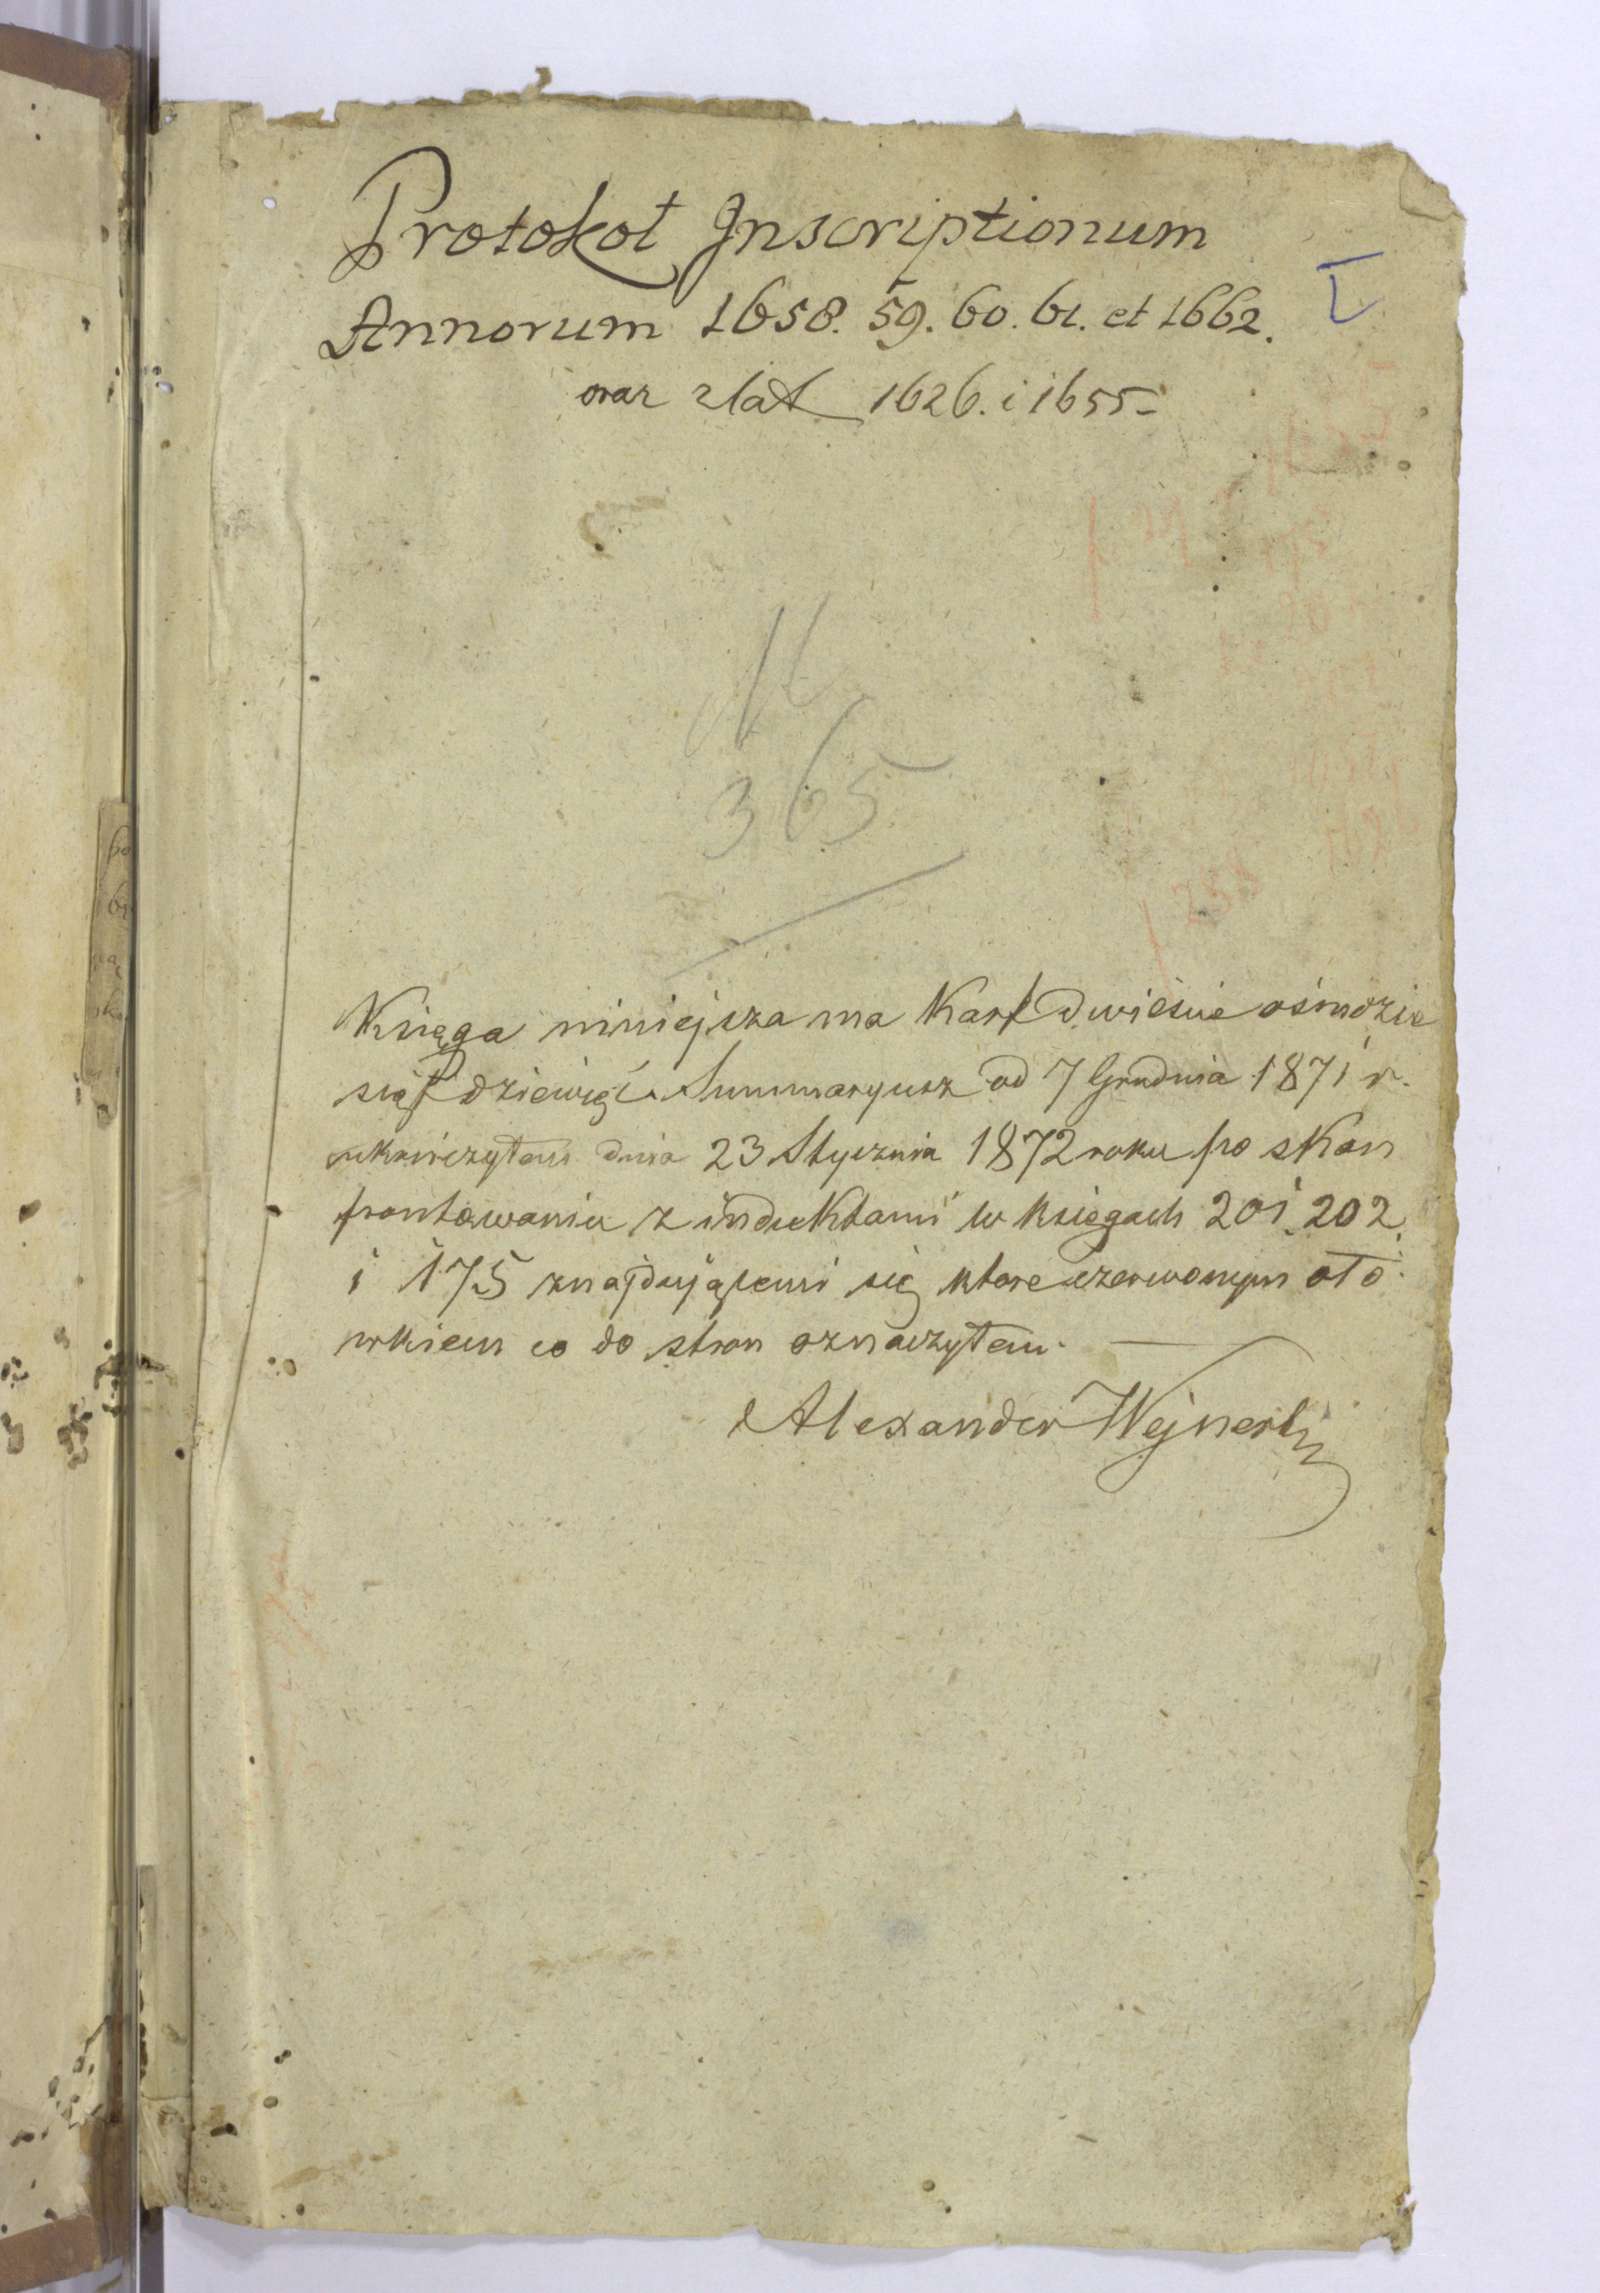 Protokoł Inscriptionum
Annorum 1658. 59. 60. 61. et 1662.
oraz z lat 1626. i 1655 -
N
365
Księga niniejsza ma Kart dwieście ośmdzie
siąt dziewięć. Summaryusz od 7 Grudnia 1871 r.
ukończyłem dnia 23 Stycznia 1872 roku po skon
frontowaniu z induktami w księgach 201, 202,
i 175 znajdującemi się które czerwonym ołó
wkiem co do stron oznaczyłem. —
Alexander Wejnert